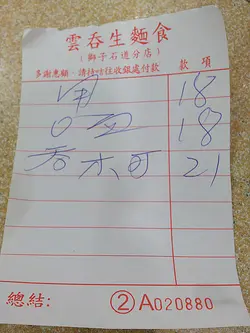 雲吞生麵食
(獅子石道分店)
多謝惠顧‧請持咭往收銀處付款 款項
18
18
吞水可 21
總結: ②A020880